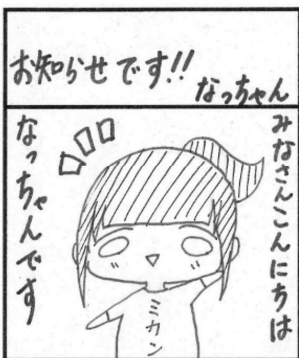 お知らせです!!
なっちゃん
みなさんこんにちは
なっちゃんです
ミカン